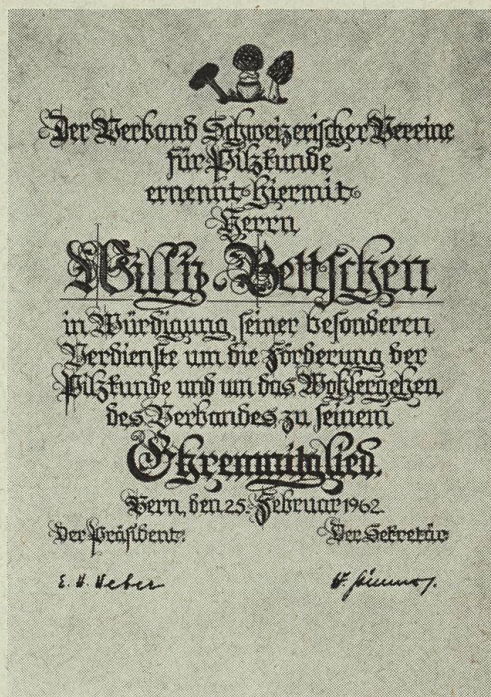 Der Verband Schweizerischer Vereine
für Pilzkunde
ernennt hiermit
Herrn
Willy Bettschen
in Würdigung seiner besonderen
Verdienste um die Förderung der
Pilzkunde und um das Wohlergehen
des Verbandes zu seinem
Ehrenmitglied.
Bern, den 25. Februar 1962.
Der Präsident: Der Sekretär:
E. H. Weber